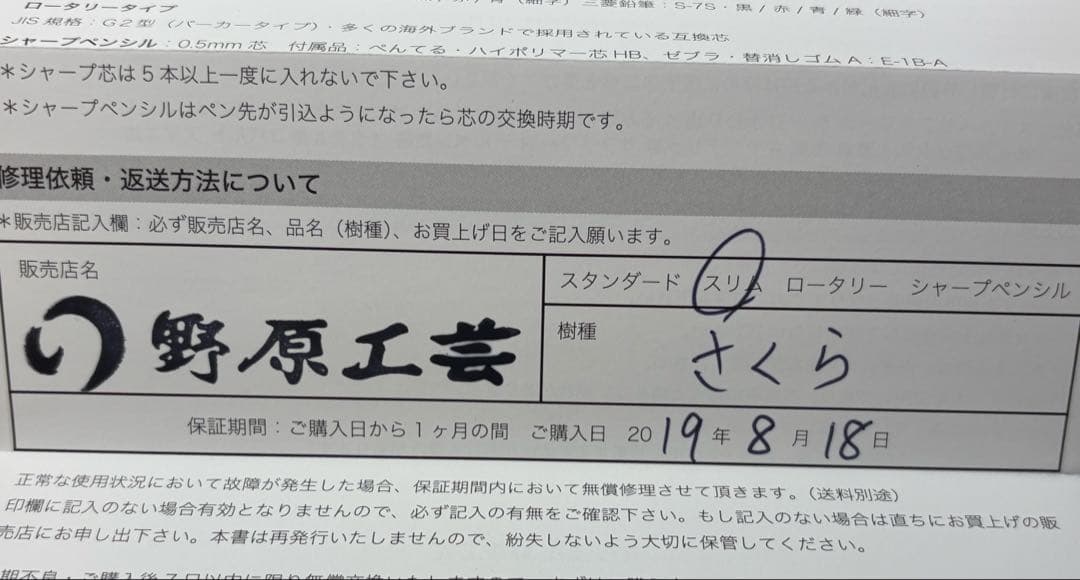 ロータリータイプ
（細字）三菱鉛筆：S-7S・黒 / 赤 / 青 / 緑（細字）
JIS規格：G2型（パーカータイプ）・多くの海外ブランドで採用されている互換芯
シャープペンシル：0.5mm 芯　付属品：ぺんてる・ハイポリマー芯HB、ゼブラ・替消しゴムA：E-1B-A
＊シャープ芯は５本以上一度に入れないで下さい。
＊シャープペンシルはペン先が引込ようになったら芯の交換時期です。
修理依頼・返送方法について
＊販売店記入欄：必ず販売店名、品名（樹種）、お買上げ日をご記入願います。
販売店名
野原工芸
スタンダード　スリム　ロータリー　シャープペンシル
樹種
さくら
保証期間：ご購入日から１ヶ月の間　ご購入日　2019年 8月 18日
正常な使用状況において故障が発生した場合、保証期間内において無償修理させて頂きます。（送料別途）
印欄に記入のない場合有効となりませんので、必ず記入の有無をご確認下さい。もし記入のない場合は直ちにお買上げの販
売店にお申し出下さい。本書は再発行いたしませんので、紛失しないよう大切に保管してください。